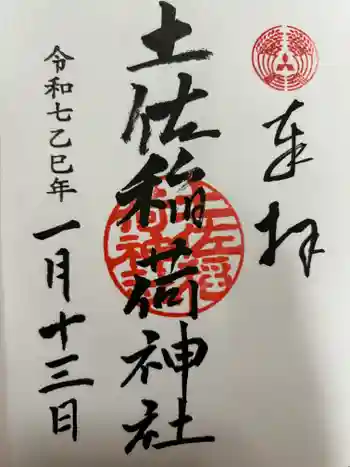 奉拝
土佐稲荷神社
令和七乙巳年 一月十三日